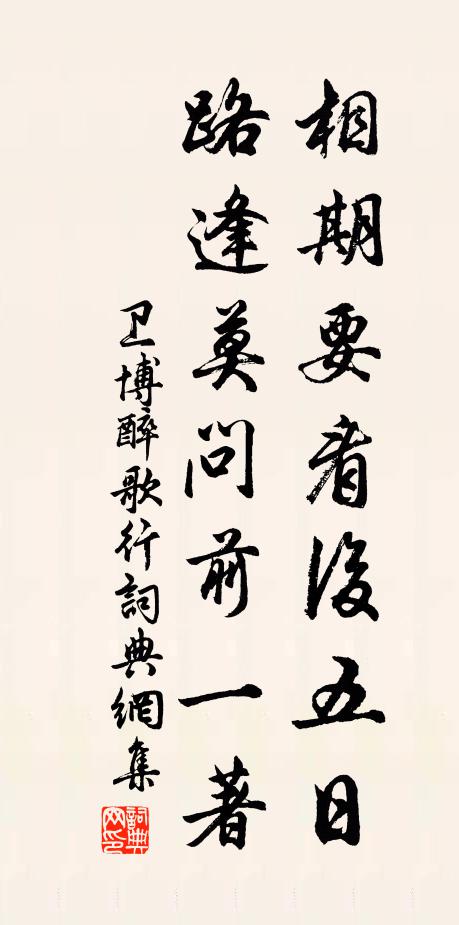 相期要看後五日
路逢莫問前一著
卫博醉歌行詞典網集
詞典网印